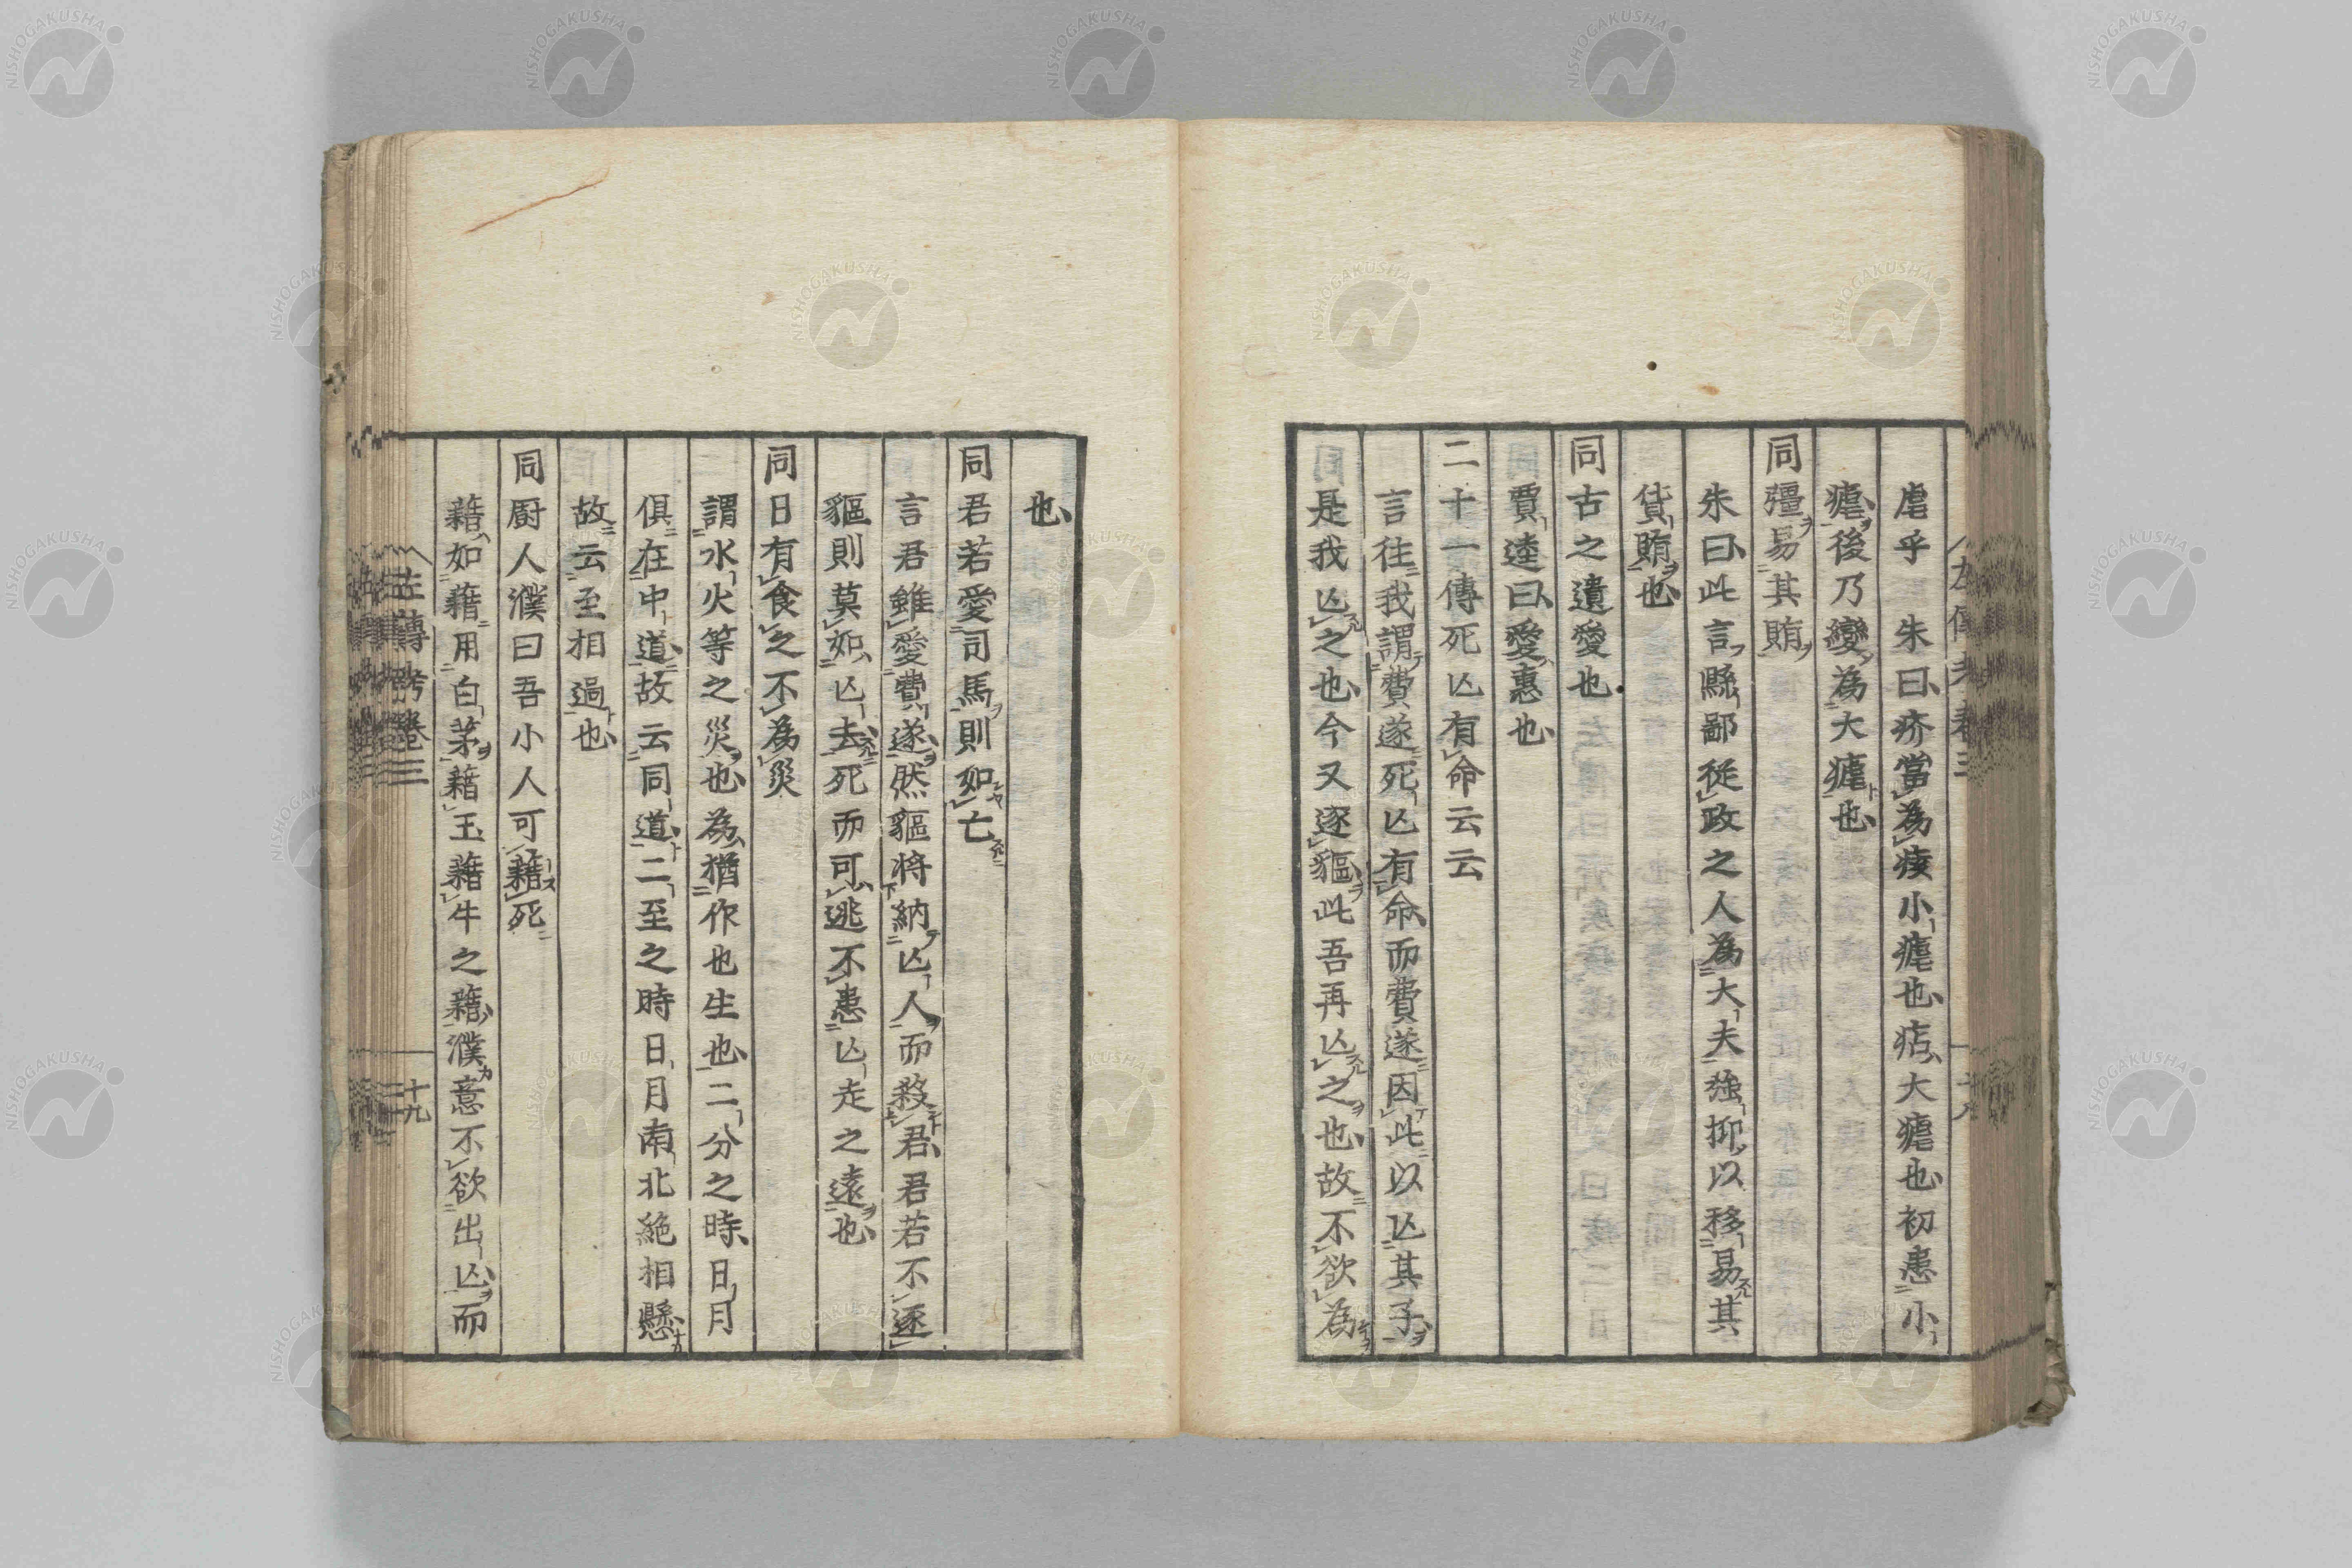 虐乎　朱曰疥當為痎小瘧也痁大瘧也初患小
瘧後乃變為大瘧也
同彊易其賄
朱曰此言縣鄙從政之人為大夫強抑以移易其
貨賄也
同古之遺愛也
賈逵曰愛惠也
二十一傳死亾有命云云
言往我謂費遂死亾有命而費遂因此以亾其子
是我亾之也今又逐貙此吾再亾之也故不欲為
也
同君若愛司馬則如亡
言君雖愛費遂然貙將納亾人而殺君君若不逐
貙則莫如亾去死而可逃不患亾走之遠也
同日有食之不為災
謂水火等之災也為猶作也生也二分之時日月
俱在中道故云同道二至之時日月南北絶相懸
故云至相過也
同厨人濮曰吾小人可藉死
藉如藉用白茅藉玉藉牛之藉濮意不欲出亾而
左傳考卷三
十九